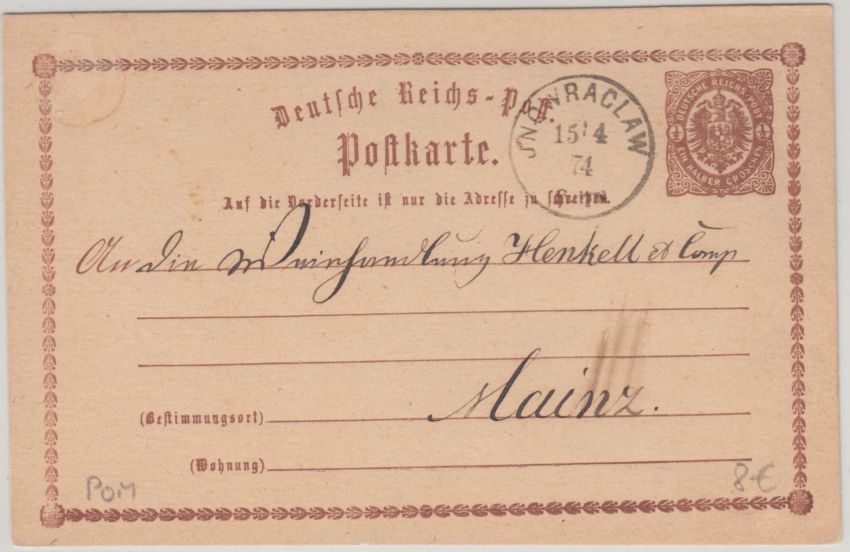 Deutsche Reichs-Post.
Postkarte.
Auf die Vorderseite ist nur die Adresse zu schreiben.
JNOWRACLAW
15 4
74
DEUTSCHE REICHS-POST
½ ½
EIN HALBER GROSCHEN
An die Weinhandlung Henkell et Comp
Mainz.
(Bestimmungsort)
(Wohnung)
POM
8€